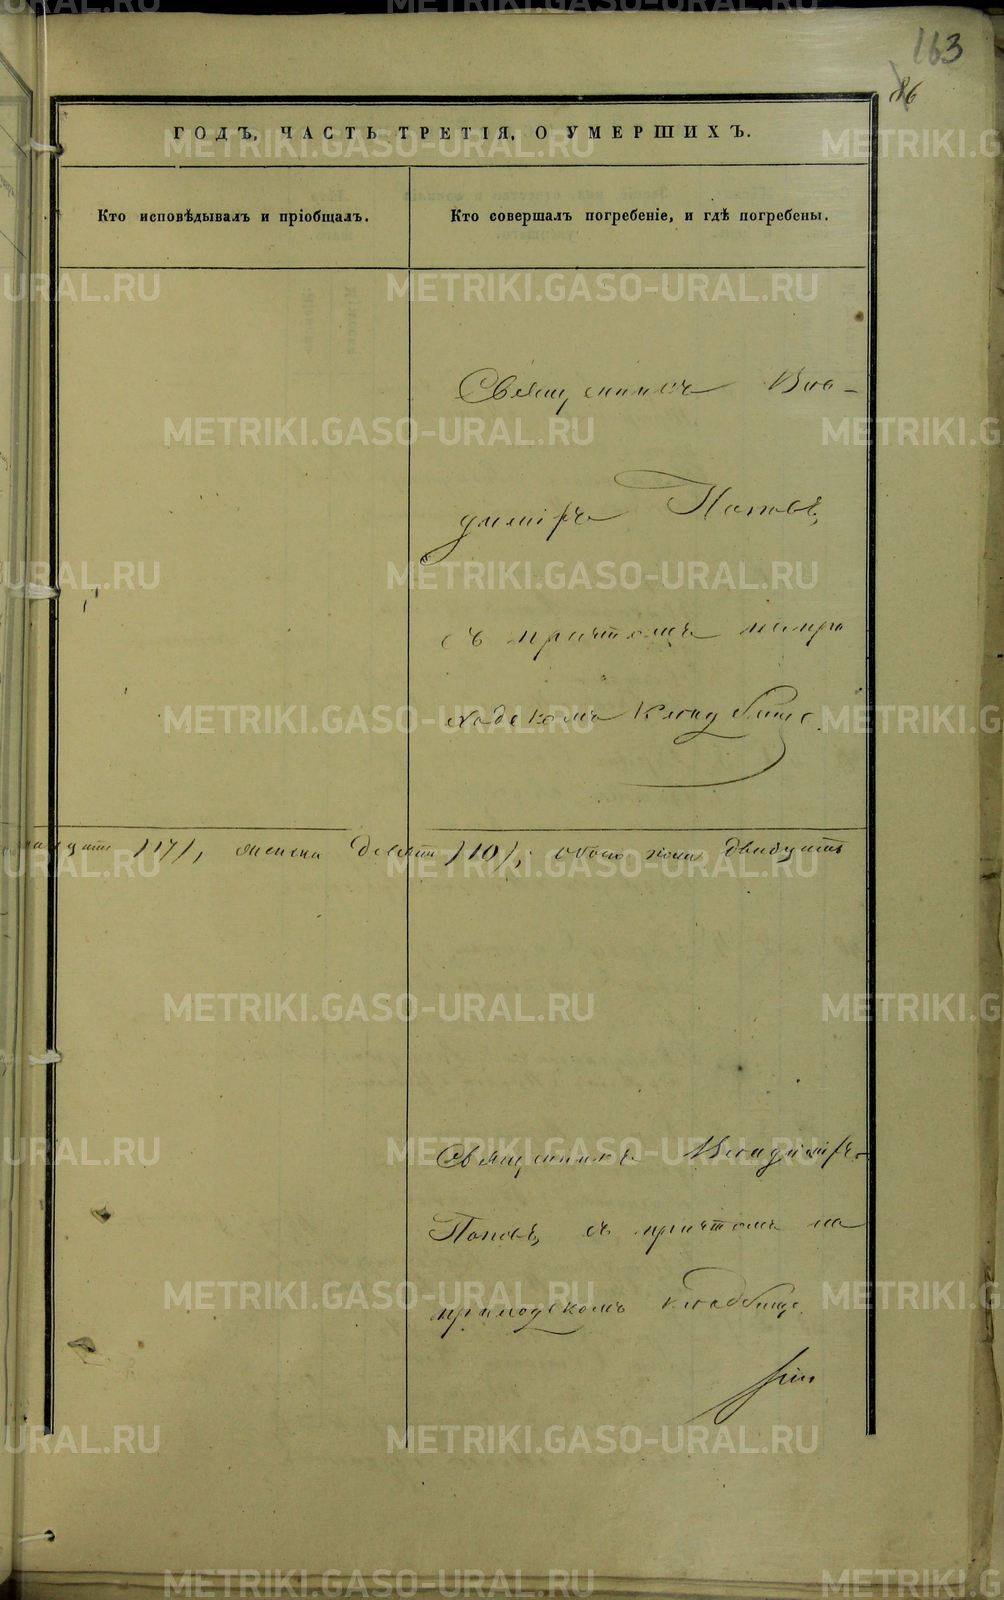 163
86
ГОДЪ, ЧАСТЬ ТРЕТІЯ, О УМЕРШИХЪ.
Кто исповѣдывалъ и пріобщалъ.
Кто совершалъ погребеніе, и гдѣ погребены.
Священникъ Вла-
димiръ Поповъ,
съ причтомъ на при
ходскомъ кладбище.
надцать /17/, женска десять /10/, обоего пола двадцать
Священникъ Владимiръ
Поповъ, съ причтомъ на
приходскомъ кладбище.
METRIKI.GASO-URAL.RU